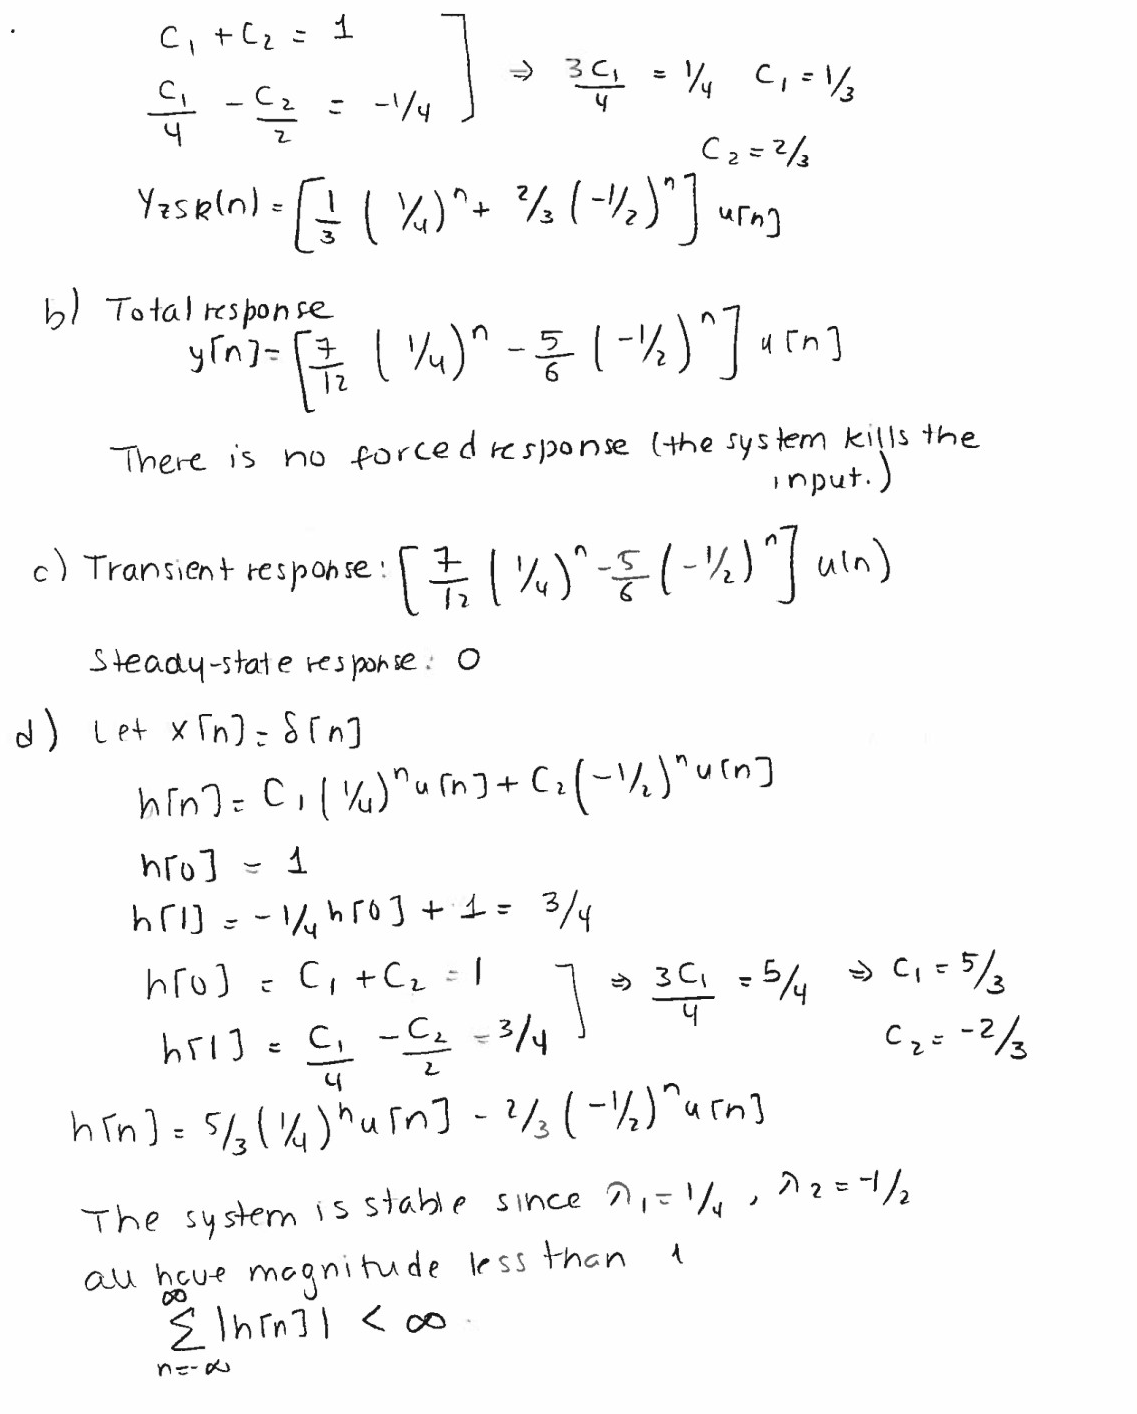 C₁ + C₂ = 1
C₁/4 - C₂/2 = -1/4 ] ⇒ 3C₁/4 = 1/4 C₁ = 1/3
C₂ = 2/3
YZSR(n) = [1/3 (1/4)ⁿ + 2/3 (-1/2)ⁿ] u[n]
b) Total response
y[n] = [7/12 (1/4)ⁿ - 5/6 (-1/2)ⁿ] u[n]
There is no forced response (the system kills the
input.)
c) Transient response: [7/12 (1/4)ⁿ - 5/6 (-1/2)ⁿ] u(n)
Steady-state response: 0
d) Let x[n] = δ[n]
h[n] = C₁ (1/4)ⁿ u[n] + C₂ (-1/2)ⁿ u[n]
h[0] = 1
h[1] = -1/4 h[0] + 1 = 3/4
h[0] = C₁ + C₂ = 1 ] ⇒ 3C₁/4 = 5/4 ⇒ C₁ = 5/3
h[1] = C₁/4 - C₂/2 = 3/4 C₂ = -2/3
h[n] = 5/3 (1/4)ⁿ u[n] - 2/3 (-1/2)ⁿ u[n]
The system is stable since λ₁ = 1/4, λ₂ = -1/2
all have magnitude less than 1
∞
Σ |h[n]| < ∞
n=-∞